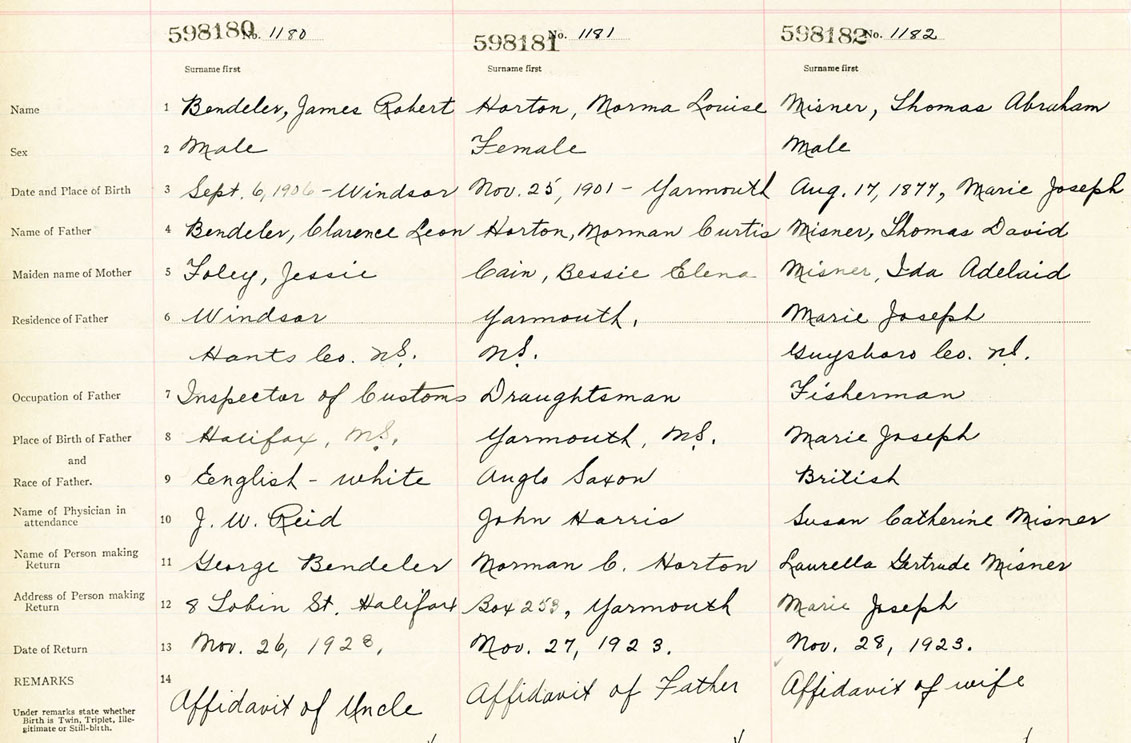 598180 No. 1180 598181 No. 1181 598182 No. 1182
Surname first Surname first Surname first
Name 1 Bendeler, James Robert Horton, Norma Louise Misner, Thomas Abraham
Sex 2 Male Female Male
Date and Place of Birth 3 Sept. 6, 1906 - Windsor Nov. 25, 1901 - Yarmouth Aug. 17, 1877, Marie Joseph
Name of Father 4 Bendeler, Clarence Leon Horton, Norman Curtis Misner, Thomas David
Maiden name of Mother 5 Foley, Jessie Cain, Bessie Elena Misner, Ida Adelaid
Residence of Father 6 Windsor Yarmouth, Marie Joseph
Hants Co. N.S. N.S. Guysboro Co. N.S.
Occupation of Father 7 Inspector of Customs Draughtsman Fisherman
Place of Birth of Father 8 Halifax, N.S. Yarmouth, N.S. Marie Joseph
and
Race of Father. 9 English - white Anglo Saxon British
Name of Physician in
attendance 10 J. W. Reid John Harris Susan Catherine Misner
Name of Person making
Return 11 George Bendeler Norman C. Horton Laurella Gertrude Misner
Address of Person making
Return 12 8 Tobin St. Halifax Box 253, Yarmouth Marie Joseph
Date of Return 13 Nov. 26, 1923. Nov. 27, 1923. Nov. 28, 1923.
REMARKS 14 Affidavit of Uncle Affidavit of Father Affidavit of wife
Under remarks state whether
Birth is Twin, Triplet, Ille-
gitimate or Still-birth.